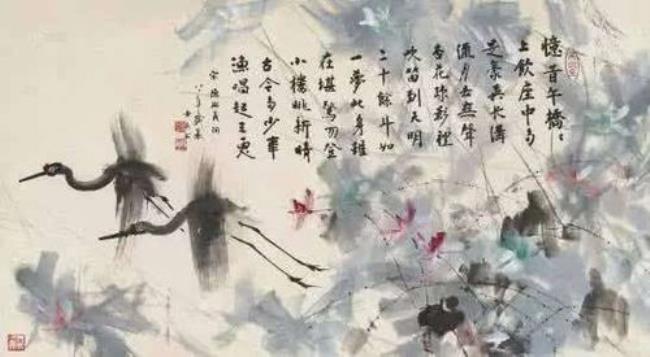 憶昔午橋〻
上飲座中多
是豪英長溝
流月去無聲
杏花疎影裡
吹笛到天明
二十餘年如
一夢此身雖
在堪驚閒登
小樓眺新晴
古今多少事
漁唱起三更
宋陳與義詞